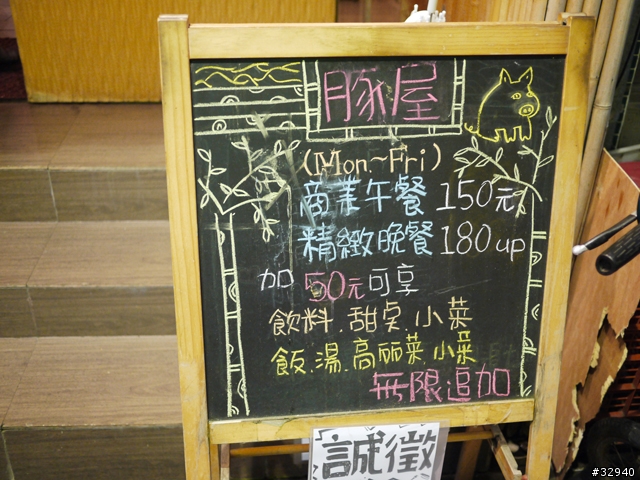 豚屋
(Mon.~Fri)
商業午餐 150元
精緻晚餐 180 up
加 50元可享
飲料.甜桌.小菜
飯.湯.高丽菜.小菜
無限追加
誠徵
#32940